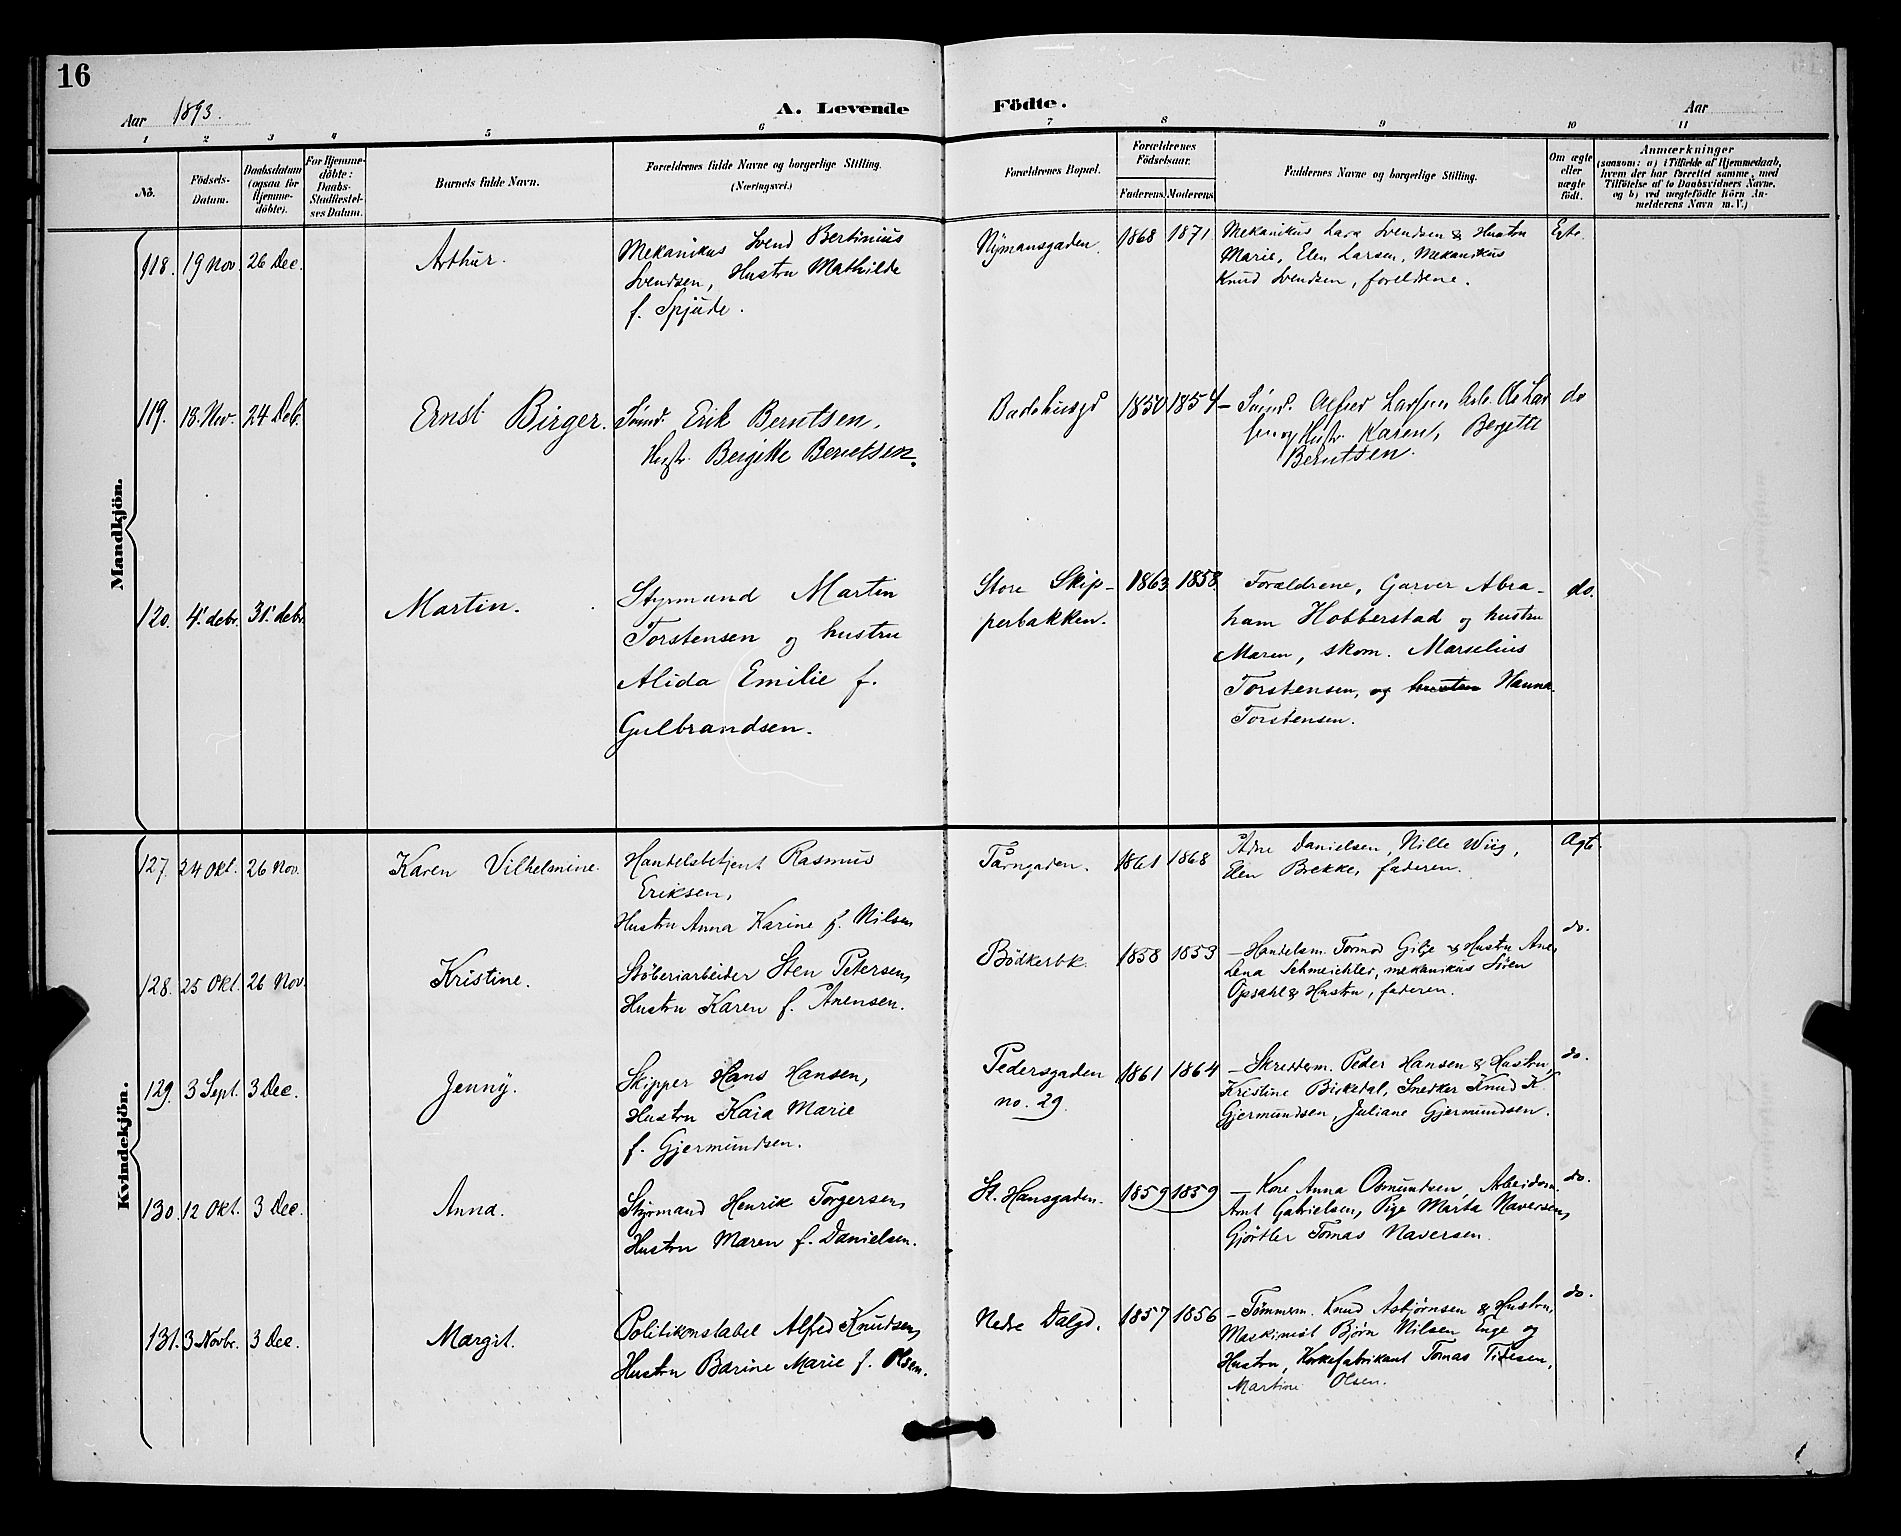 16
Aar 1893.
A. Levende Födte.
Aar
1 2 3 4 5 6 7 8 9 10 11
No.
Födsels-Datum.
Daabsdatum (ogsaa for Hjemme-döbte).
For Hjemme-döbte: Daabs-Stadfestel-ses Datum.
Barnets fulde Navn.
Forældrenes fulde Navne og borgerlige Stilling. (Næringsvei.)
Forældrenes Bopæl.
Forældrenes Födselsaar.
Faderens. Moderens.
Faddernes Navne og borgerlige Stilling.
Om ægte eller uægte födt.
Anmærkninger
(saasom: a) i Tilfælde af Hjemmedaab,
hvem der har forrettet samme, med
Tilföielse af to Daabsvidners Navne,
og b) ved uegtefödte Börn An-
melderens Navn m. V.)
Mandkjön.
118. 19 Nov 26 Dec. Arthur.
Mekanikus Svend Bertinius
Svendsen, Hustru Mathilde
f. Spjude.
Nymansgaden. 1868 1871
Mekanikus Lars Svendsen & Hustru
Marie, Elen Larsen, Mekanikus
Knud Svendsen, foreldrene.
Egte.
119. 18. Nov. 24 Deb. Ernst Birger.
Erik Berntsen.
Hustr. Bergitte Berntsen.
Badehusgd 1850 1854
Alfred Larsen
Hustr. Karen, Bergette
Berntsen.
do
120. 4. debr. 31. debr. Martin.
Styrmand Martin
Torstensen og hustru
Alida Emilie f.
Gulbrandsen.
Store Skip-
perbakken.
1863 1858.
Forældrene, Garver Abra-
ham Hobberstad og hustru
Maren, skom. Marselius
Torstensen, og hustru Hanna
Torstensen.
do.
Kvindekjön.
127. 24 Okt. 26 Nov. Karen Vilhelmine.
Handelsbetjent Rasmus
Eriksen,
Hustru Anna Karine f. Nilsen
Tårngaden. 1861 1868
Ådne Danielsen, Nille Wiig,
Elen Brekke, faderen.
Ægte.
128. 25 Okt. 26 Nov. Kristine.
Støberiarbeider Sten Petersen,
Hustru Karen f. Ånensen.
Bödkerbk. 1858 1853
– Handelsm. Tormod Gilje & Hustru Ane,
Lena Schmeichler, mekanikus Sören
Opsahl & Hustru, faderen.
do.
129. 3 Sept. 3 Dec. Jenny.
Skipper Hans Hansen,
Hustru Kaia Marie
f. Gjermundsen.
Pedersgaden
no. 29.
1861 1864
– Skrædderm. Peder Hansen & Hustru,
Kristine Birkedal, Snedker Knud K.
Gjermundsen, Juliane Gjermundsen.
do.
130. 12 Okt. 3 Dec. Anna.
Styrmand Henrik Torgersen,
Hustru Maren f. Danielsen.
St. Hansgaden. 1859 1859
– Kone Anna Osmundsen, Arbeidsm.
Arnt Gabrielsen, Pige Marta Naversen,
Gjörtler Tomas Naversen.
do.
131. 3 Novbr. 3 Dec. Margit.
Politikonstabel Alfred Knudsen,
Hustru Barine Marie f. Olsen.
Nedre Dalgd. 1857 1856
– Tömmerm. Knud Asbjörnsen & Hustru,
Maskinist Bjørn Nilsen Enge og
Hustru, Korkefabrikant Tomas Titesen,
Martine Olsen.
do.